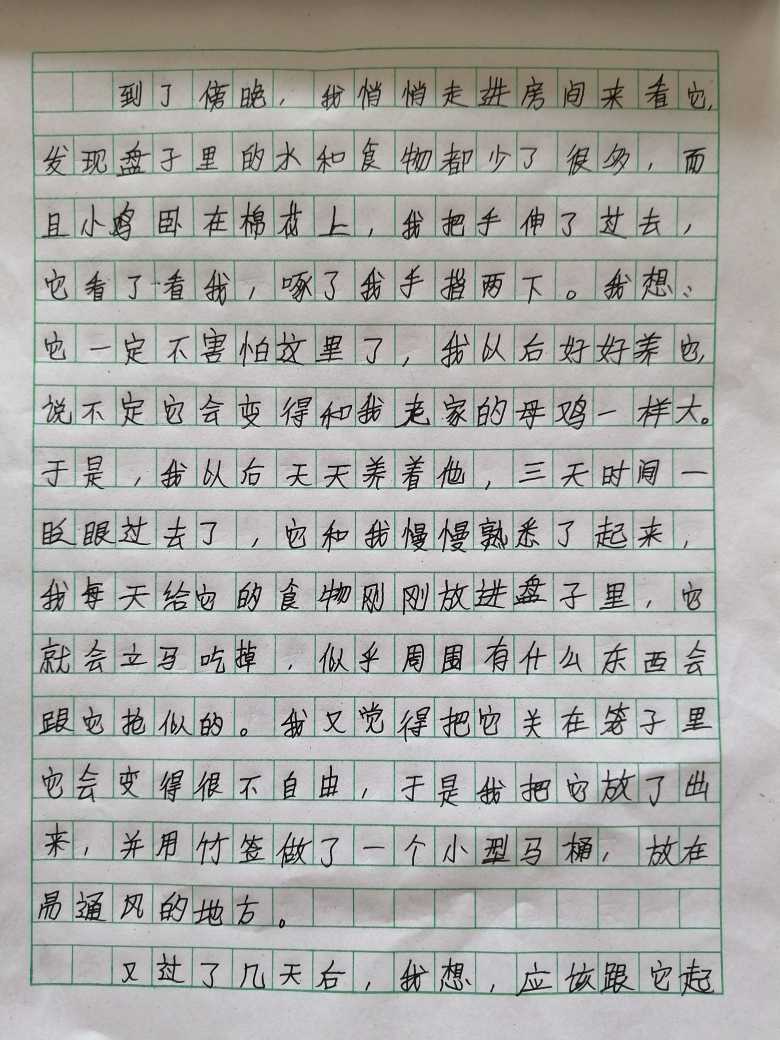 到了傍晚，我悄悄走进房间来看它，
发现盘子里的水和食物都少了很多，而
且小鸡卧在棉花上，我把手伸了过去，
它看了看我，啄了我手指两下。我想：
它一定不害怕这里了，我以后好好养它，
说不定它会变得和我老家的母鸡一样大。
于是，我以后天天养着他，三天时间一
眨眼过去了，它和我慢慢熟悉了起来，
我每天给它的食物刚刚放进盘子里，它
就会立马吃掉，似乎周围有什么东西会
跟它抢似的。我又觉得把它关在笼子里
它会变得很不自由，于是我把它放了出
来，并用竹签做了一个小型马桶，放在
易通风的地方。
又过了几天后，我想，应该跟它起